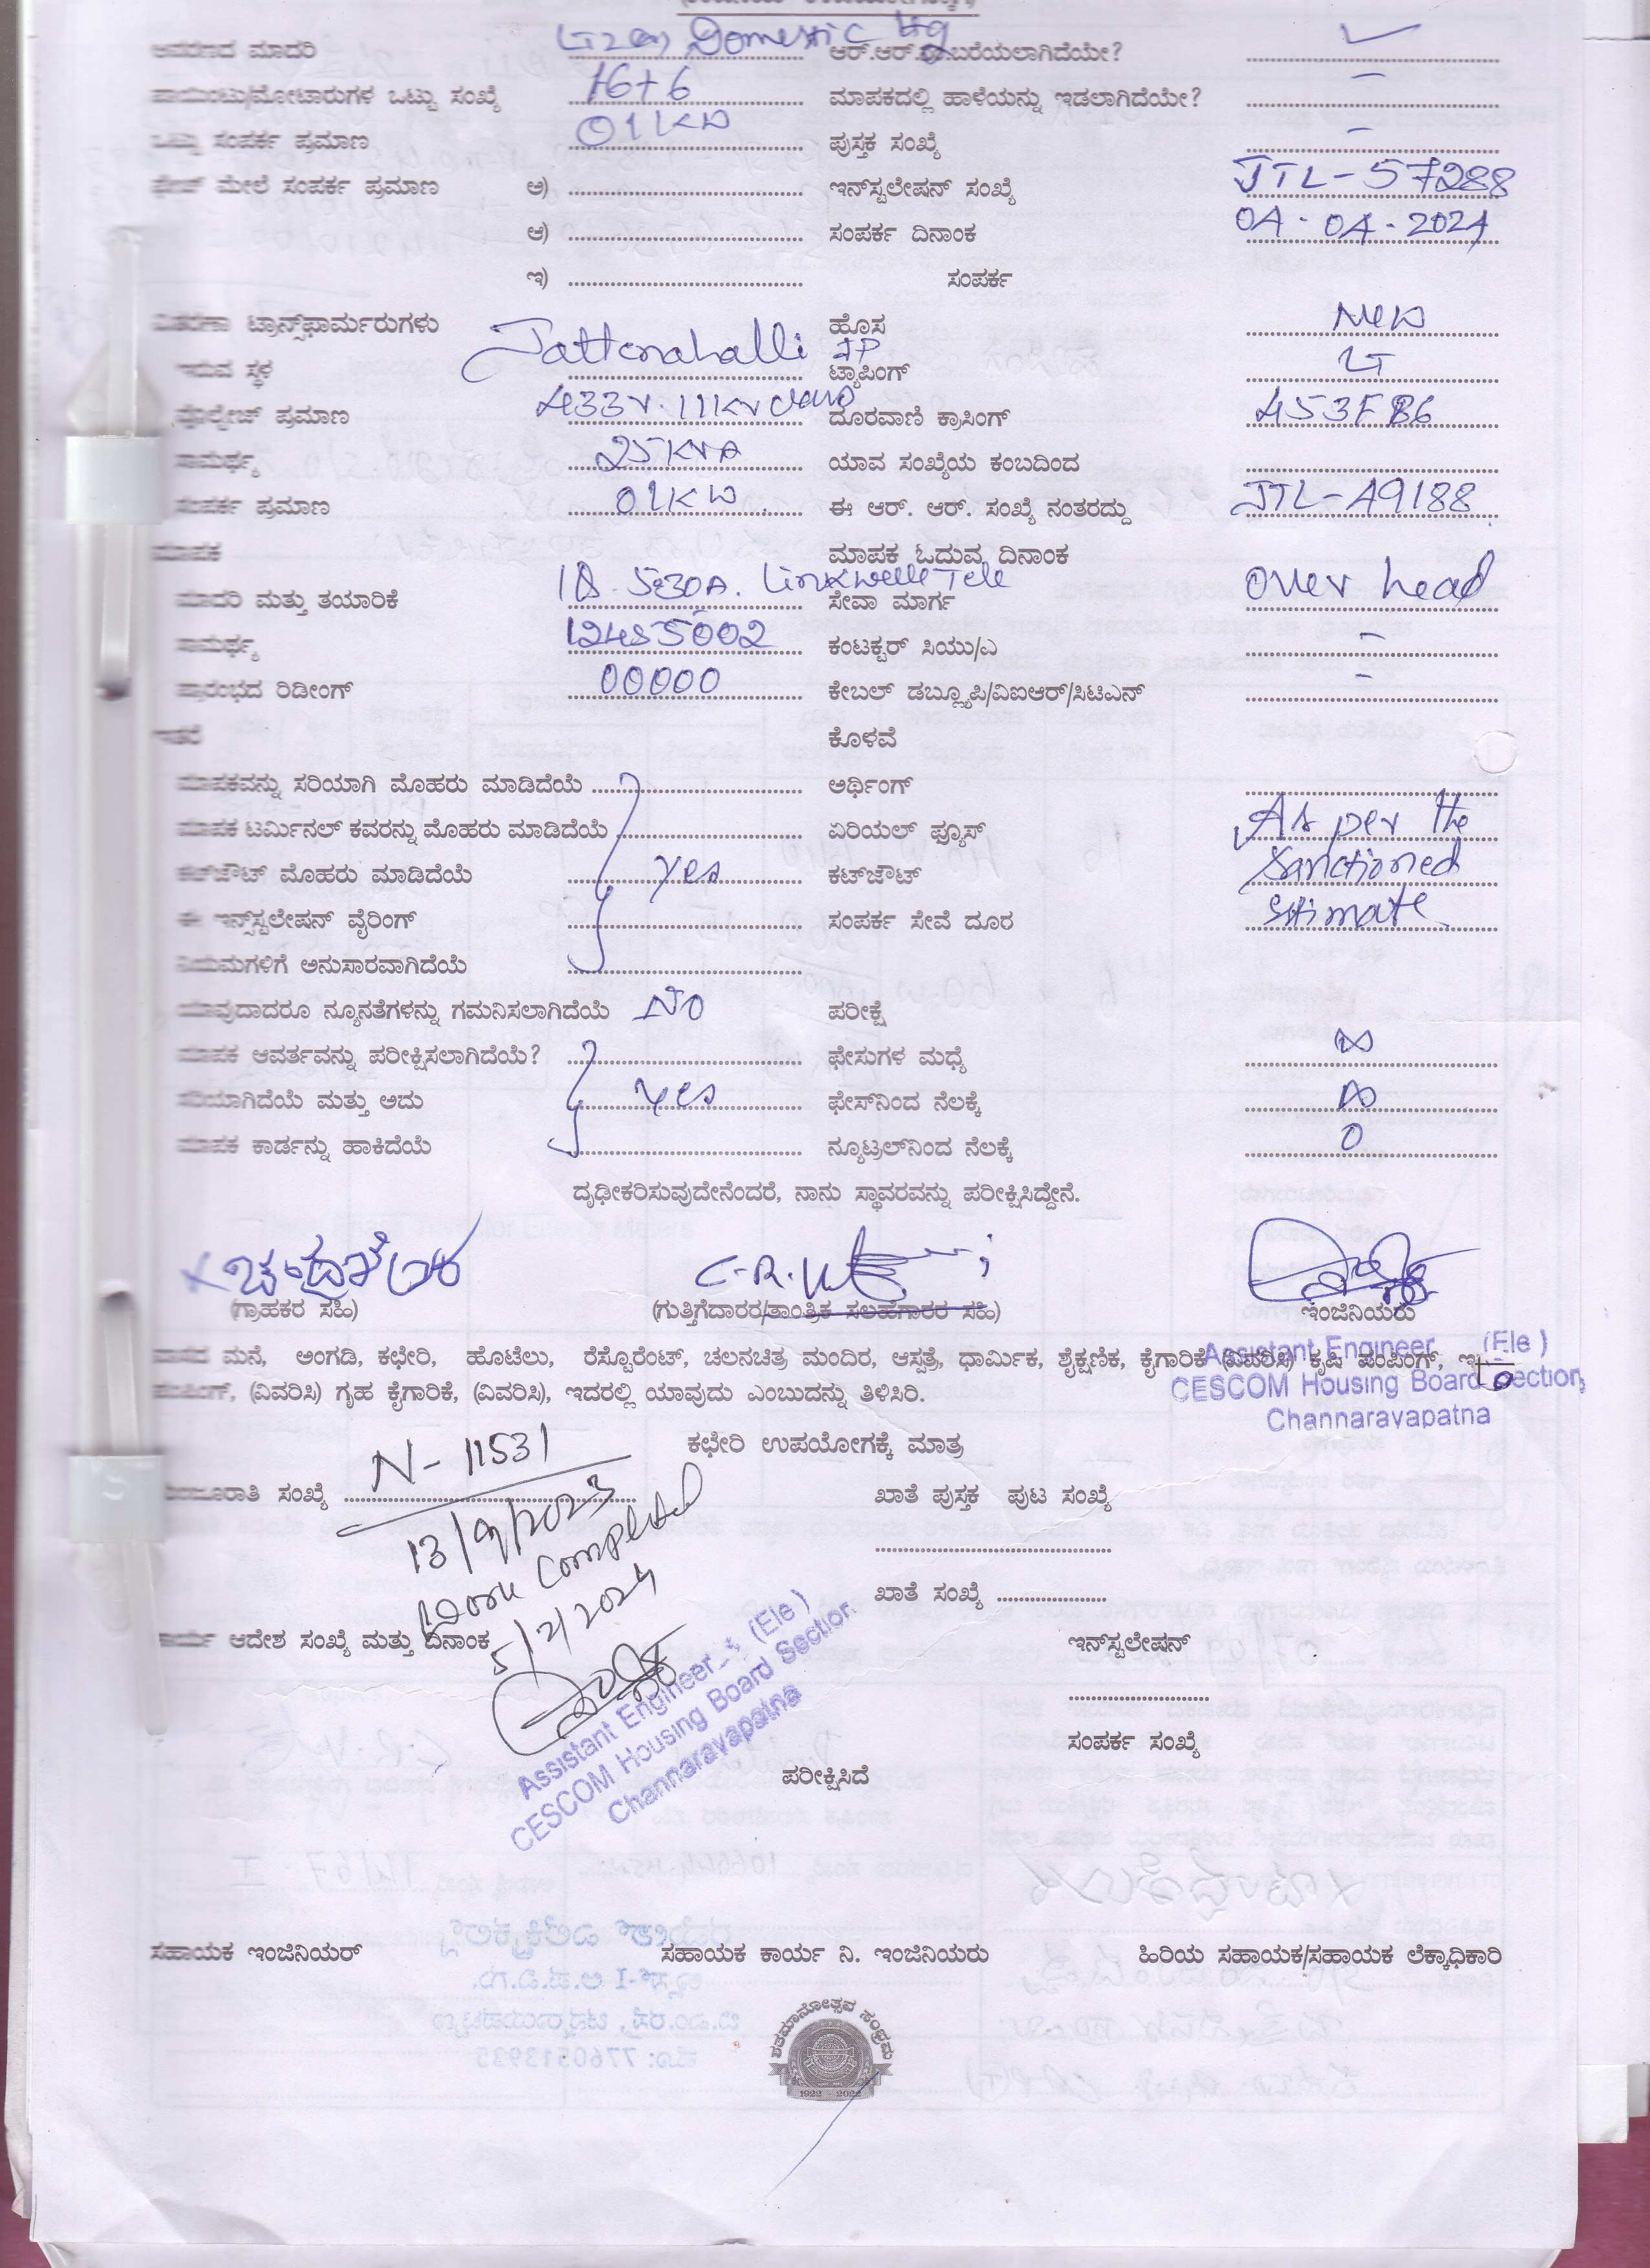 ಆವರಣದ ಮಾದರಿ Domestic ltg ಆರ್.ಆರ್.ಸಂ.ಬರೆಯಲಾಗಿದೆಯೇ?
ಪಾಯಿಂಟು/ಮೋಟಾರುಗಳ ಒಟ್ಟು ಸಂಖ್ಯೆ 16+6 ಮಾಪಕದಲ್ಲಿ ಹಾಳೆಯನ್ನು ಇಡಲಾಗಿದೆಯೇ? –
ಒಟ್ಟು ಸಂಪರ್ಕ ಪ್ರಮಾಣ 01KW ಪುಸ್ತಕ ಸಂಖ್ಯೆ –
ಫೇಜ್ ಮೇಲೆ ಸಂಪರ್ಕ ಪ್ರಮಾಣ ಅ) ಇನ್‌ಸ್ಟಲೇಷನ್ ಸಂಖ್ಯೆ JTL-57288
ಆ) ಸಂಪರ್ಕ ದಿನಾಂಕ 04-04-2024
ಇ) ಸಂಪರ್ಕ
ವಿತರಣಾ ಟ್ರಾನ್ಸ್‌ಫಾರ್ಮರುಗಳು ಹೊಸ New
ಇರುವ ಸ್ಥಳ Jattenahalli JP ಟ್ಯಾಪಿಂಗ್ LT
ವೊಲ್ಟೇಜ್ ಪ್ರಮಾಣ 433V. 11KV ದೂರವಾಣಿ ಕ್ರಾಸಿಂಗ್
ಸಾಮರ್ಥ್ಯ 25KVA ಯಾವ ಸಂಖ್ಯೆಯ ಕಂಬದಿಂದ
ಸಂಪರ್ಕ ಪ್ರಮಾಣ 01KW ಈ ಆರ್. ಆರ್. ಸಂಖ್ಯೆ ನಂತರದ್ದು JTL-49188
ಮಾಪಕ ಮಾಪಕ ಓದುವ ದಿನಾಂಕ
ಮಾದರಿ ಮತ್ತು ತಯಾರಿಕೆ 5-30A. Linkwelle Tele ಸೇವಾ ಮಾರ್ಗ over head
ಸಾಮರ್ಥ್ಯ 12485002 ಕಂಟಕ್ಟರ್ ಸಿಯು/ಎ –
ಪ್ರಾರಂಭದ ರಿಡೀಂಗ್ 00000 ಕೇಬಲ್ ಡಬ್ಲ್ಯೂಪಿ/ವಿಐಆರ್/ಸಿಟಿಎನ್ –
ಇತರೆ ಕೊಳವೆ
ಮಾಪಕವನ್ನು ಸರಿಯಾಗಿ ಮೊಹರು ಮಾಡಿದೆಯೆ ಅರ್ಥಿಂಗ್
ಮಾಪಕ ಟರ್ಮಿನಲ್ ಕವರನ್ನು ಮೊಹರು ಮಾಡಿದೆಯೆ ಏರಿಯಲ್ ಫ್ಯೂಸ್ As per the
ಕಟ್‌ಔಟ್ ಮೊಹರು ಮಾಡಿದೆಯೆ yes ಕಟ್‌ಔಟ್ Sanctioned
ಈ ಇನ್ಸ್‌ಸ್ಟಲೇಷನ್ ವೈರಿಂಗ್ ಸಂಪರ್ಕ ಸೇವೆ ದೂರ estimate
ನಿಯಮಗಳಿಗೆ ಅನುಸಾರವಾಗಿದೆಯೆ
ಯಾವುದಾದರೂ ನ್ಯೂನತೆಗಳನ್ನು ಗಮನಿಸಲಾಗಿದೆಯೆ NO ಪರೀಕ್ಷೆ
ಮಾಪಕ ಆವರ್ತವನ್ನು ಪರೀಕ್ಷಿಸಲಾಗಿದೆಯೆ? ಫೇಸುಗಳ ಮಧ್ಯೆ ∞
ಸರಿಯಾಗಿದೆಯೆ ಮತ್ತು ಅದು yes ಫೇಸ್‌ನಿಂದ ನೆಲಕ್ಕೆ ∞
ಮಾಪಕ ಕಾರ್ಡನ್ನು ಹಾಕಿದೆಯೆ ನ್ಯೂಟ್ರಲ್‌ನಿಂದ ನೆಲಕ್ಕೆ 0
ದೃಢೀಕರಿಸುವುದೇನೆಂದರೆ, ನಾನು ಸ್ಥಾವರವನ್ನು ಪರೀಕ್ಷಿಸಿದ್ದೇನೆ.
(ಗ್ರಾಹಕರ ಸಹಿ) (ಗುತ್ತಿಗೆದಾರರ/ತಾಂತ್ರಿಕ ಸಲಹೆಗಾರರ ಸಹಿ) ಇಂಜಿನಿಯರು
Assistant Engineer (Ele)
CESCOM Housing Board Section,
Channarayapatna
ವಾಸದ ಮನೆ, ಅಂಗಡಿ, ಕಛೇರಿ, ಹೊಟೆಲು, ರೆಸ್ಟೊರೆಂಟ್, ಚಲನಚಿತ್ರ ಮಂದಿರ, ಆಸ್ಪತ್ರೆ, ಧಾರ್ಮಿಕ, ಶೈಕ್ಷಣಿಕ, ಕೈಗಾರಿಕೆ (ವಿವರಿಸಿ) ಕೃಷಿ ಪಂಪಿಂಗ್,
ಪಂಪಿಂಗ್, (ವಿವರಿಸಿ) ಗೃಹ ಕೈಗಾರಿಕೆ, (ವಿವರಿಸಿ), ಇದರಲ್ಲಿ ಯಾವುದು ಎಂಬುದನ್ನು ತಿಳಿಸಿರಿ.
ಕಛೇರಿ ಉಪಯೋಗಕ್ಕೆ ಮಾತ್ರ
ಮಂಜೂರಾತಿ ಸಂಖ್ಯೆ N-11531 ಖಾತೆ ಪುಸ್ತಕ ಪುಟ ಸಂಖ್ಯೆ
13/9/2023
Work Completed
ಖಾತೆ ಸಂಖ್ಯೆ
5/2/2024
ಕಾರ್ಯ ಆದೇಶ ಸಂಖ್ಯೆ ಮತ್ತು ದಿನಾಂಕ ಇನ್‌ಸ್ಟಲೇಷನ್
Assistant Engineer (Ele)
CESCOM Housing Board Section
Channarayapatna
ಸಂಪರ್ಕ ಸಂಖ್ಯೆ
ಪರೀಕ್ಷಿಸಿದೆ
ಸಹಾಯಕ ಇಂಜಿನಿಯರ್ ಸಹಾಯಕ ಕಾರ್ಯ ನಿ. ಇಂಜಿನಿಯರು ಹಿರಿಯ ಸಹಾಯಕ/ಸಹಾಯಕ ಲೆಕ್ಕಾಧಿಕಾರಿ
ಶತಮಾನೋತ್ಸವ ಸಂಭ್ರಮ
1922 - 2022